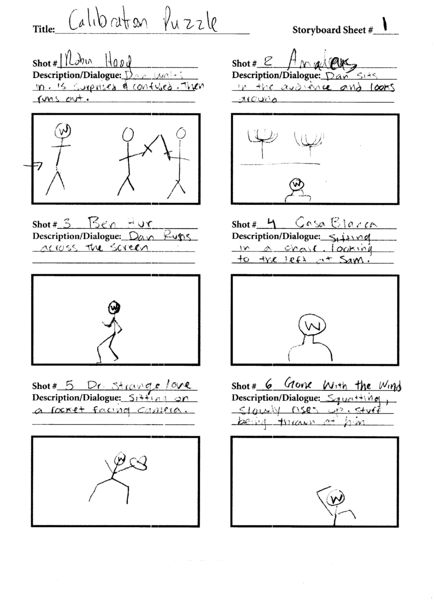 Title: Calibration Puzzle Storyboard Sheet # 1
Shot # 1 Robin Hood
Description/Dialogue: Dan
in. is surprised & confused. Then
runs out.
Shot # 2
Description/Dialogue: Dan Sits
in the audience and looks
around
W
W
Shot # 3 Ben Hur
Description/Dialogue: Dan Runs
across the screen
Shot # 4 Casa Blanca
Description/Dialogue: Sitting
in a chair. looking
to the left at Sam.
W
W
Shot # 5 Dr. Strange love
Description/Dialogue: Sitting on
a rocket facing camera.
Shot # 6 Gone With the Wind
Description/Dialogue: Squatting,
slowly rises up. stuff
being thrown at him
W
W